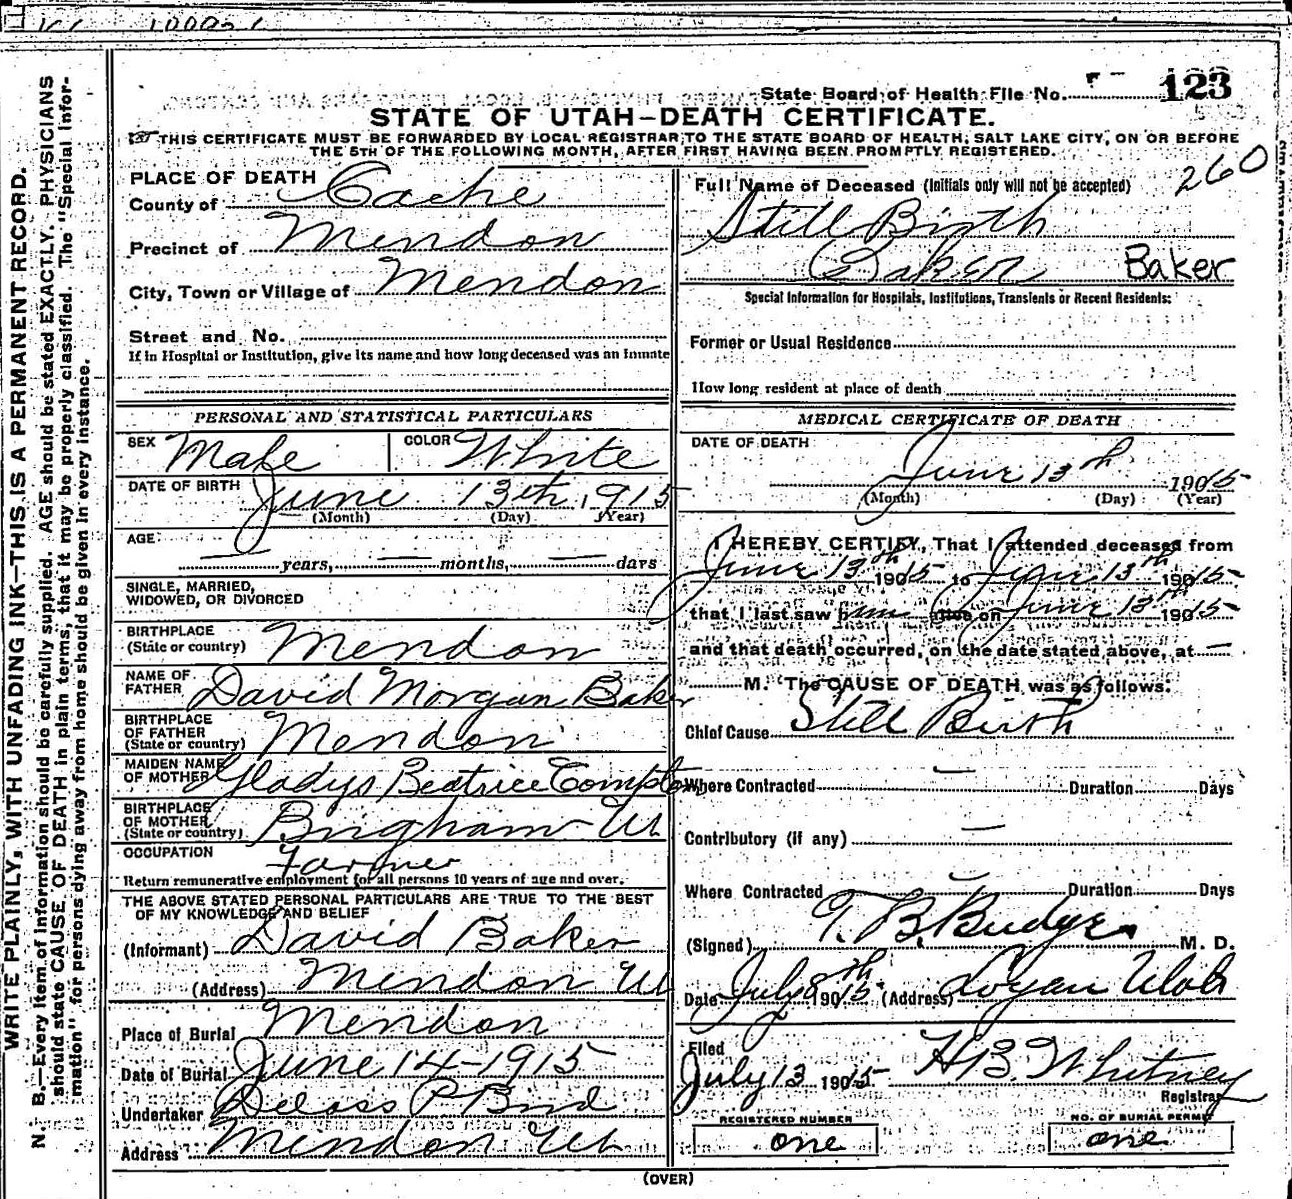 State Board of Health File No. 123
STATE OF UTAH—DEATH CERTIFICATE.
THIS CERTIFICATE MUST BE FORWARDED BY LOCAL REGISTRAR TO THE STATE BOARD OF HEALTH, SALT LAKE CITY, ON OR BEFORE
THE 5TH OF THE FOLLOWING MONTH, AFTER FIRST HAVING BEEN PROMPTLY REGISTERED.
WRITE PLAINLY, WITH UNFADING INK—THIS IS A PERMANENT RECORD.
N. B.—Every item of information should be carefully supplied. AGE should be stated EXACTLY. PHYSICIANS
should state CAUSE OF DEATH in plain terms, that it may be properly classified. The "Special Infor-
mation" for persons dying away from home should be given in every instance.
PLACE OF DEATH
County of Cache
Precinct of Mendon
City, Town or Village of Mendon
Street and No.
If in Hospital or Institution, give its name and how long deceased was an inmate
PERSONAL AND STATISTICAL PARTICULARS
SEX Male COLOR White
DATE OF BIRTH June 13th, 1915
(Month) (Day) (Year)
AGE
— years, — months, — days
SINGLE, MARRIED,
WIDOWED, OR DIVORCED
BIRTHPLACE
(State or country) Mendon
NAME OF
FATHER David Morgan Baker
BIRTHPLACE
OF FATHER
(State or country) Mendon
MAIDEN NAME
OF MOTHER Gladys Beatrice Compton
BIRTHPLACE
OF MOTHER
(State or country) Bingham Ut
OCCUPATION Farmer
Return remunerative employment for all persons 10 years of age and over.
THE ABOVE STATED PERSONAL PARTICULARS ARE TRUE TO THE BEST
OF MY KNOWLEDGE AND BELIEF
(Informant) David Baker
(Address) Mendon Ut
Place of Burial Mendon
Date of Burial June 14-1915
Undertaker Deloss P. Bird
Address Mendon Ut
260
Full Name of Deceased (Initials only will not be accepted)
Still Birth
Baker Baker
Special Information for Hospitals, Institutions, Transients or Recent Residents:
Former or Usual Residence
How long resident at place of death
MEDICAL CERTIFICATE OF DEATH
DATE OF DEATH
June 13th 19015
(Month) (Day) (Year)
I HEREBY CERTIFY, That I attended deceased from
June 13th 19015 to June 13th 19015
that I last saw him alive on June 13th 19015
and that death occurred, on the date stated above, at —
M. The CAUSE OF DEATH was as follows:
Chief Cause Still Birth
Where Contracted — Duration Days
Contributory (if any) —
Where Contracted — Duration Days
(Signed) T. B. Budge M. D.
Date July 8th 19015 (Address) Logan Utah
Filed
July 13 19015 H B. Whitney
Registrar
REGISTERED NUMBER NO. OF BURIAL PERMIT
one one
(OVER)